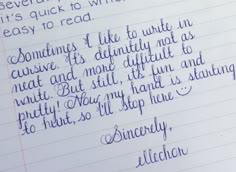 it's quick to wri
easy to read.
Sometimes I like to write in
cursive. It's definitely not as
neat and more difficult to
write. But still, it's fun and
pretty! Now my hand is starting
to hurt, so I'll stop here
Sincerely,